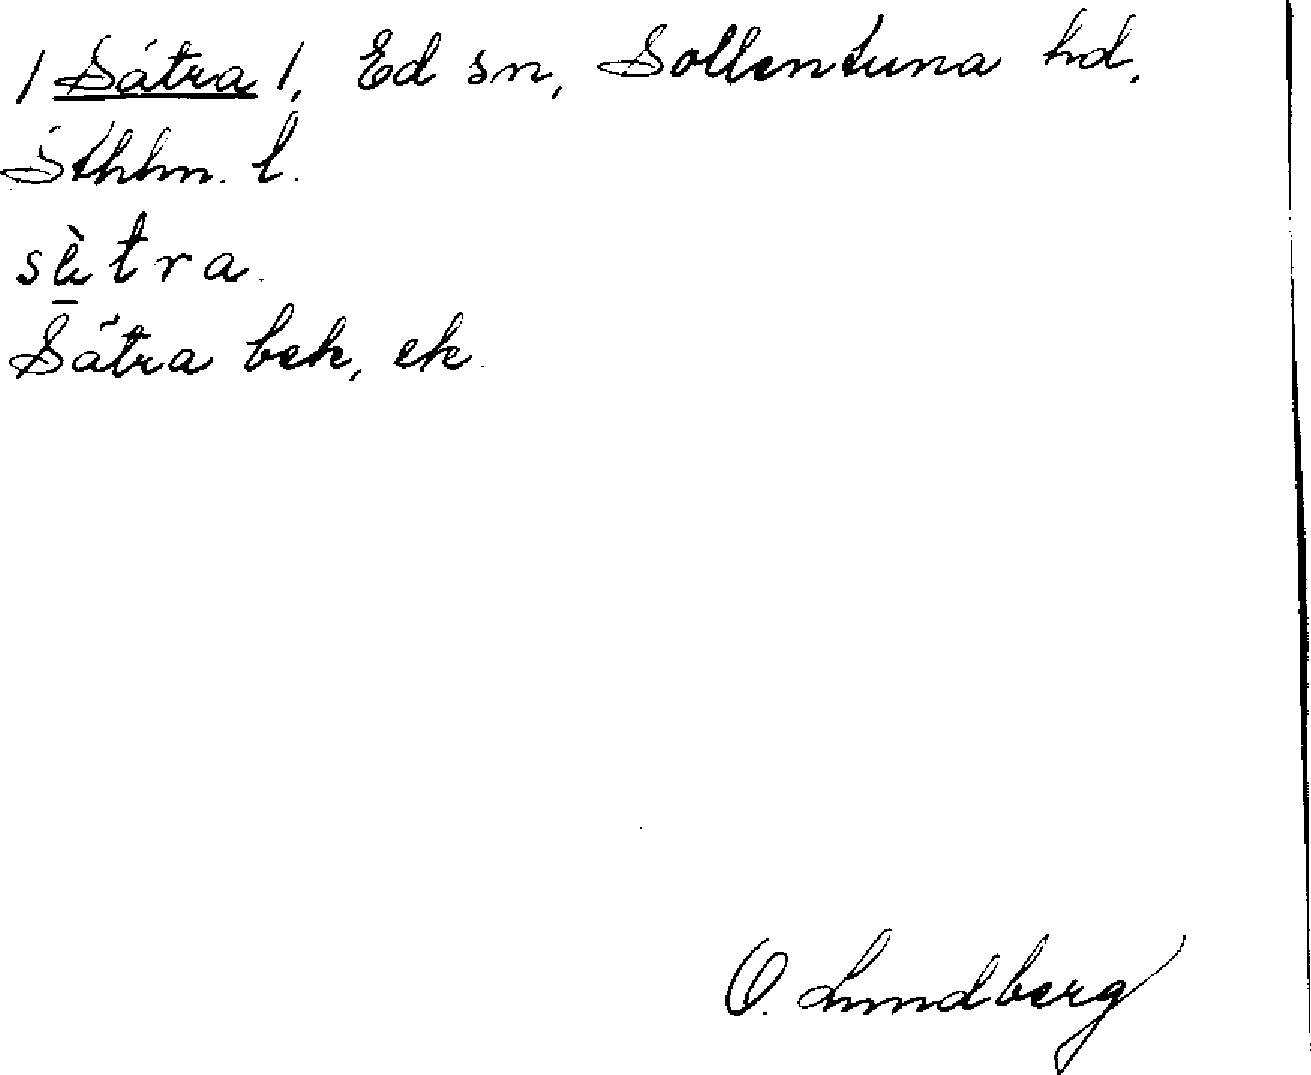 / Sätra /, Ed sn, Sollentuna hd,
Sthlm. l.
sὲtra.
Sätra bek, ek.
O. Lundberg